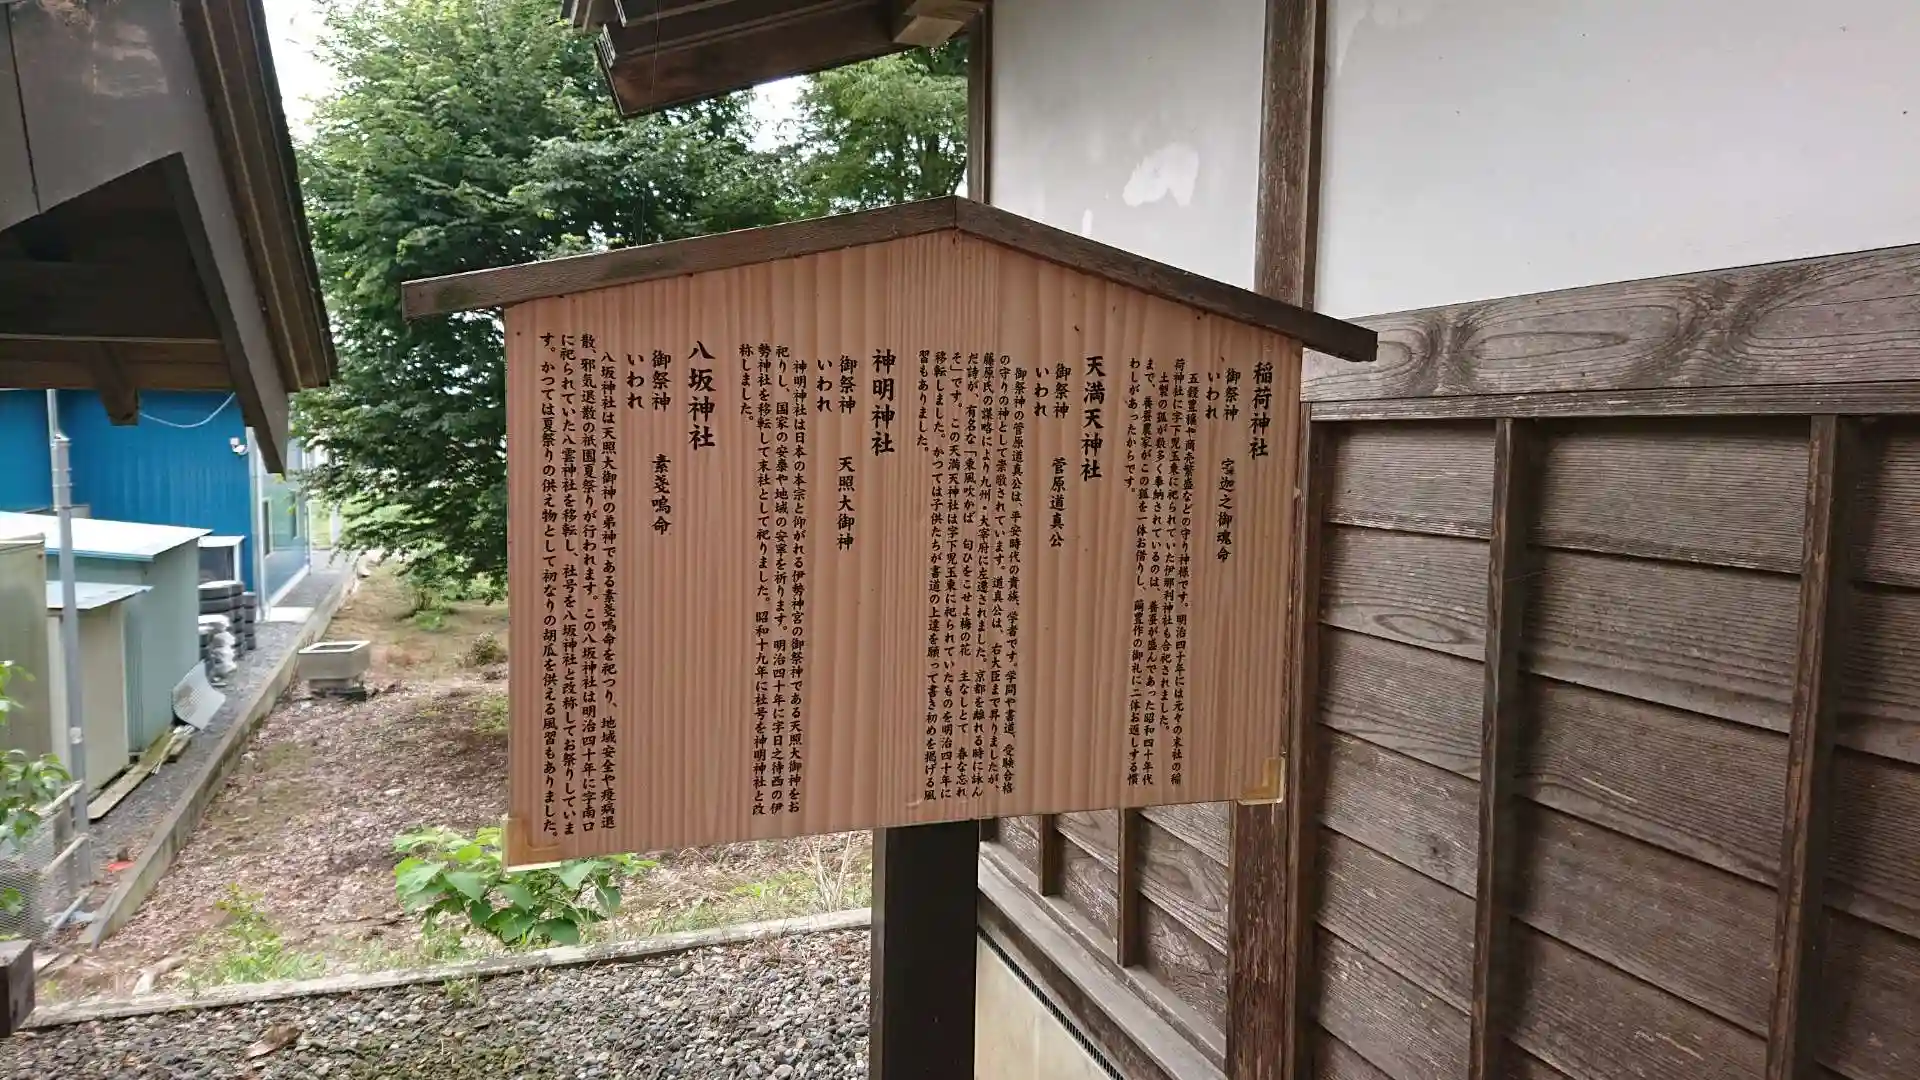 稲荷神社
御祭神　宇迦之御魂命
いわれ
五穀豊穣や商売繁盛などの守り神様です。明治四十年には元々の末社の稲
荷神社に字下児玉東に祀られていた伊那利神社も合祀されました。
土製の狐が数多く奉納されているのは、養蚕が盛んであった昭和四十年代
まで、養蚕農家がこの狐を一体お借りし、繭豊作の御礼に二体お返しする慣
わしがあったからです。
天満天神社
御祭神　菅原道真公
いわれ
御祭神の菅原道真公は、平安時代の貴族、学者です。学問や書道、受験合格
の守りの神として崇敬されています。道真公は、右大臣まで昇りましたが、
藤原氏の謀略により九州・大宰府に左遷されました。京都を離れる時に詠ん
だ詩が、有名な「東風吹かば　匂ひをこせよ梅の花　主なしとて　春な忘れ
そ」です。この天満天神社は字下児玉東に祀られていたものを明治四十年に
移転しました。かつては子供たちが書道の上達を願って書き初めを掲げる風
習もありました。
神明神社
御祭神　天照大御神
いわれ
神明神社は日本の本宗と仰がれる伊勢神宮の御祭神である天照大御神をお
祀りし、国家の安泰や地域の安寧を祈ります。明治四十年に字日之待西の伊
勢神社を移転して末社として祀りました。昭和十九年に社号を神明神社と改
称しました。
八坂神社
御祭神　素戔嗚命
いわれ
八坂神社は天照大御神の弟神である素戔嗚命を祀つり、地域安全や疫病退
散、邪気退散の祇園夏祭りが行われます。この八坂神社は明治四十年に字南口
に祀られていた八雲神社を移転し、社号を八坂神社と改称してお祭りしていま
す。かつては夏祭りの供え物として初なりの胡瓜を供える風習もありました。